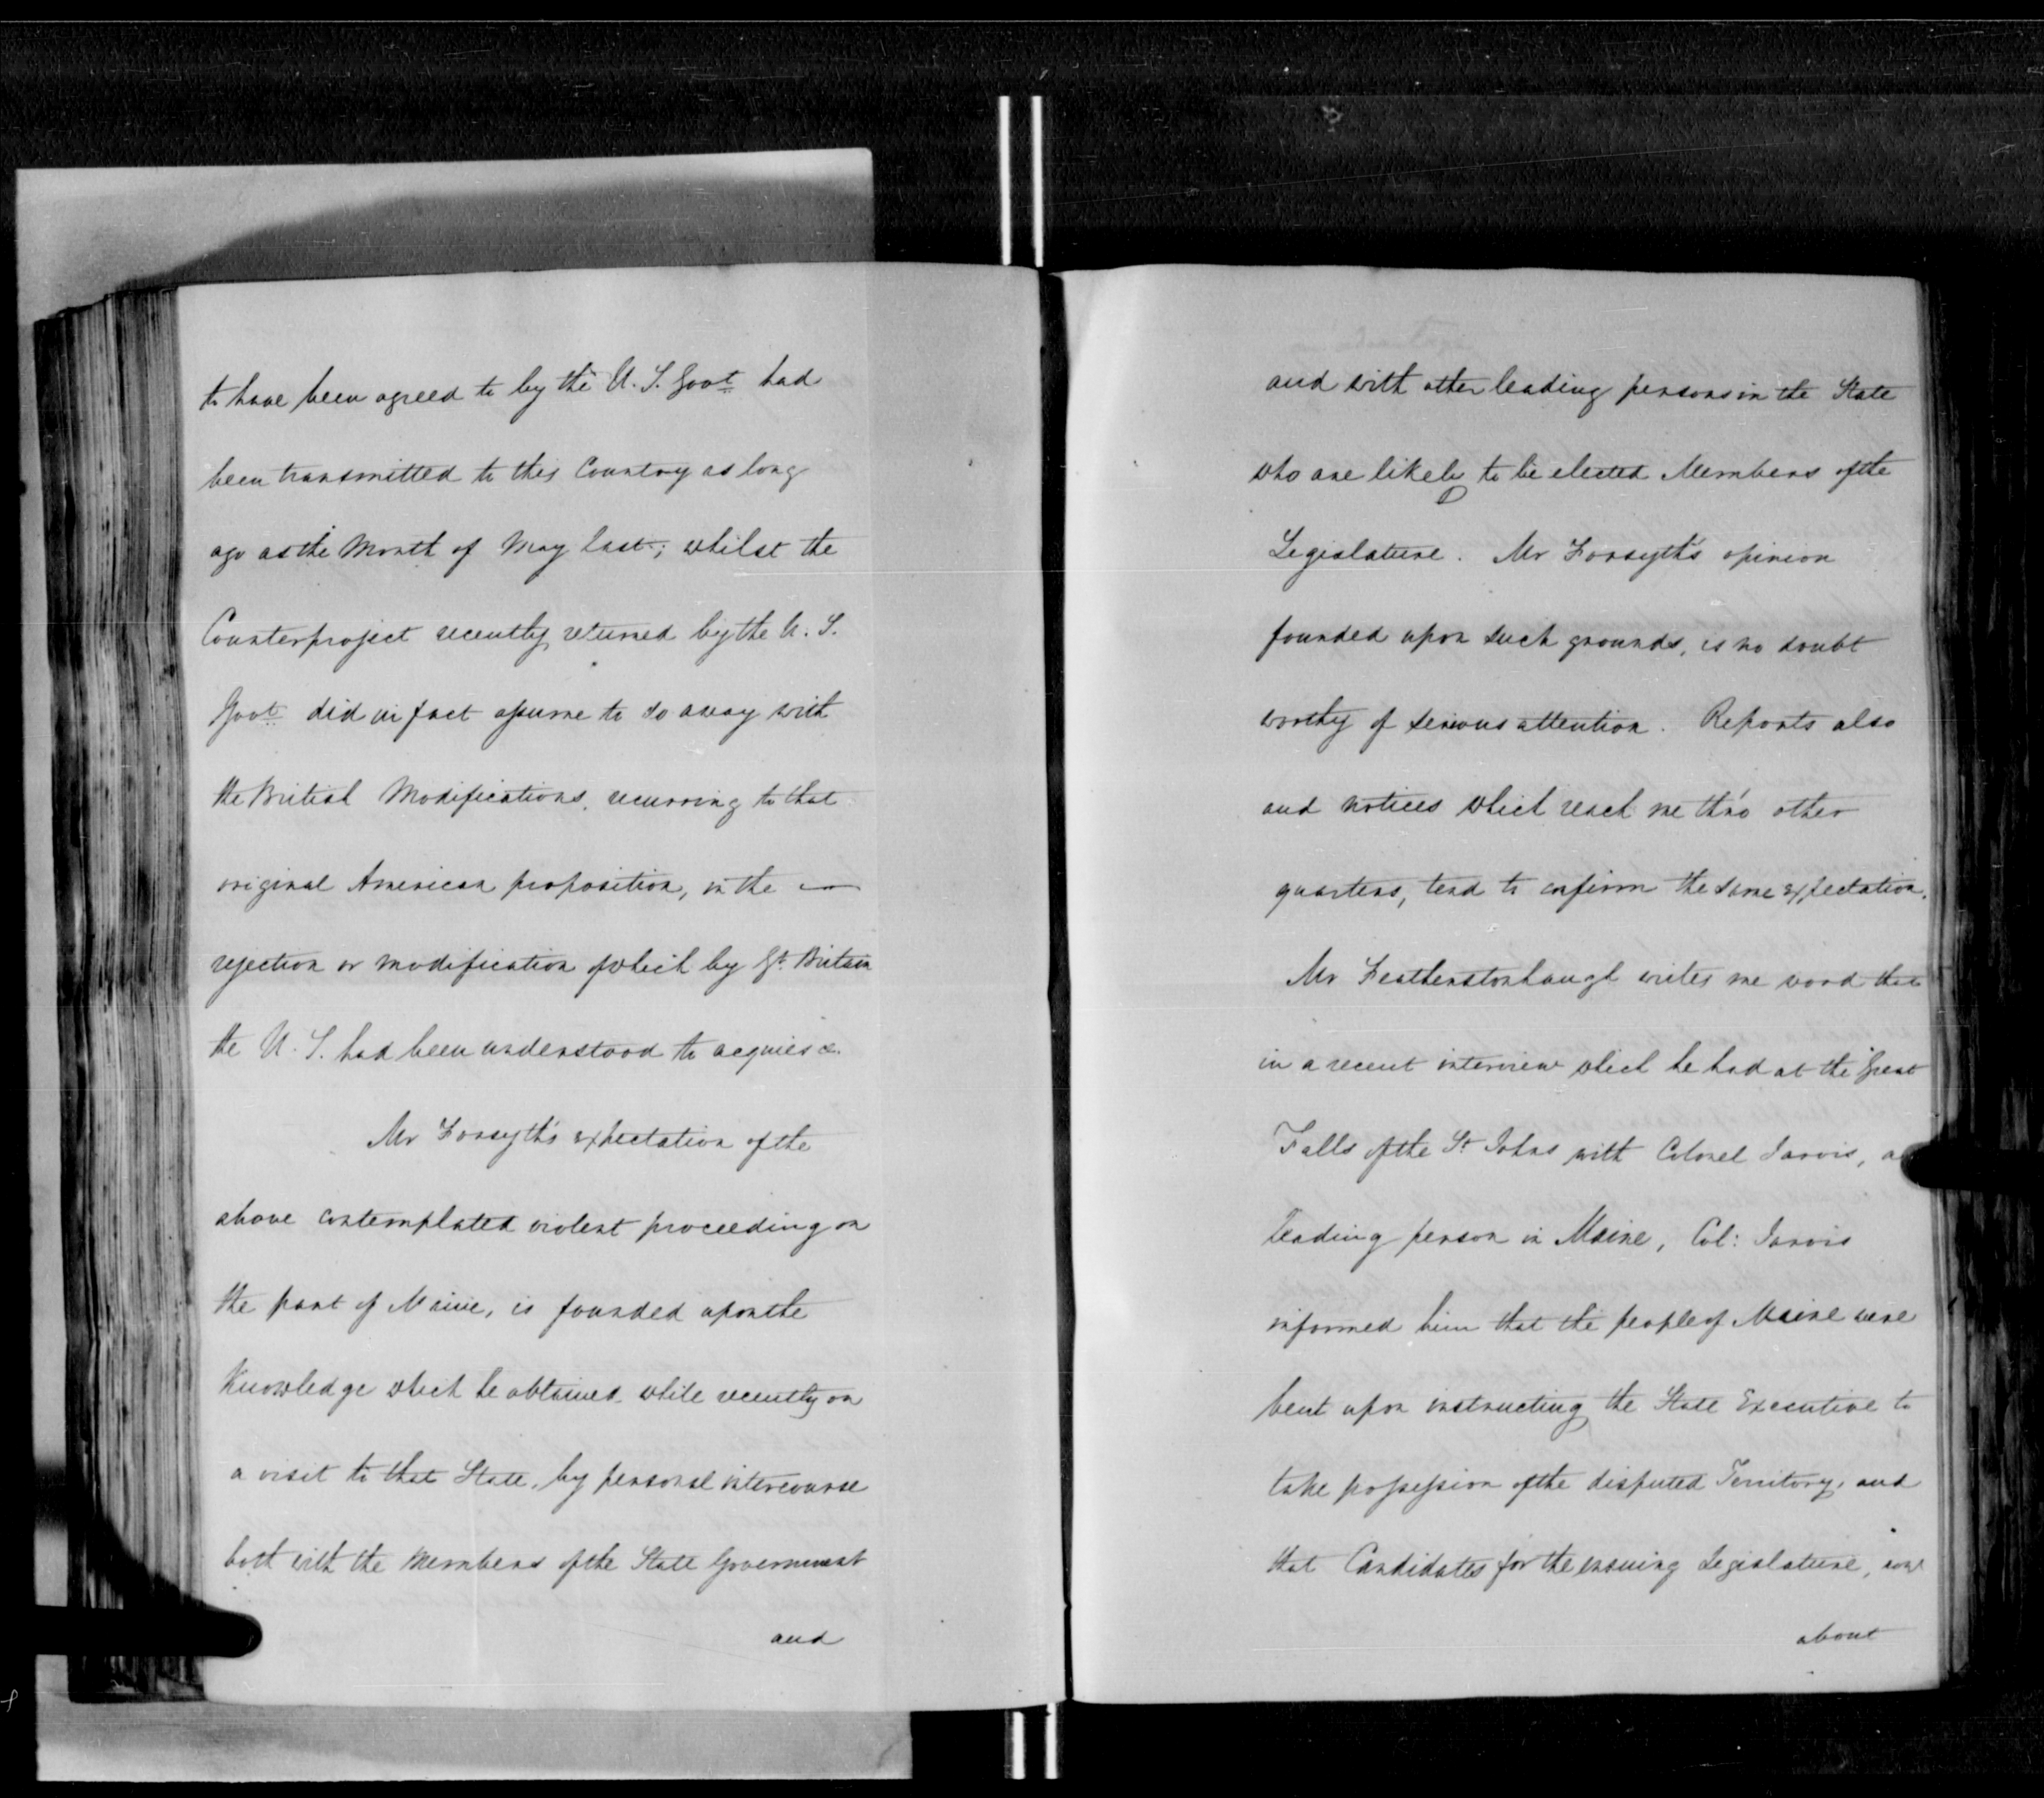 to have been agreed to by the U. S. Govt had
been transmitted to this Country as long
ago as the Month of May last; whilst the
Counterproject recently returned by the U. S.
Govt did in fact assume to do away with
the British Modifications, recurring to that
original American proposition, in the —
rejection or modification of which by Gt. Britain
the U. S. had been understood to acquiesce.
Mr Forsyth's expectation of the
above contemplated violent proceeding on
the part of Maine, is founded upon the
Knowledge which he obtained while recently on
a visit to that State, by personal intercourse
both with the Members of the State Government
and
and with other leading persons in the State
who are likely to be elected Members of the
Legislature. Mr Forsyth's opinion
founded upon such grounds, is no doubt
worthy of serious attention. Reports also
and notices which reach me thro' other
quarters, tend to confirm the same expectation.
Mr Featherstonhaugh writes me word that
in a recent interview which he had at the Great
Falls of the St Johns with Colonel Jarvis, a
leading person in Maine, Col: Jarvis
informed him that the people of Maine were
bent upon instructing the State Executive to
take possession of the disputed Territory, and
that Candidates for the ensuing Legislature, now
about